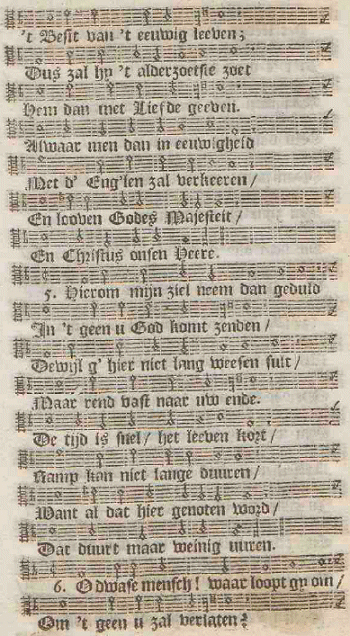 't Besit van 't eeuwig leeven;
Dus zal hy 't alderzoetste zoet
Hem dan met Liefde geeven.
Alwaar men dan in eeuwigheid
Met d' Eng'len zal verkeeren /
En looven Godes Majesteit /
En Christus onsen Heere.
5. Hierom mijn ziel neem dan geduld
In 't geen u God komt zenden /
Dewijl g' hier niet lang weesen sult /
Maar rend vast naar uw ende.
De tijd is snel / het leeven kort /
Ramp kan niet lange duuren /
Want al dat hier genoten word /
Dat duurt maar weinig uuren.
6. O dwase mensch! waar loopt gy om /
Om 't geen u zal verlaten?